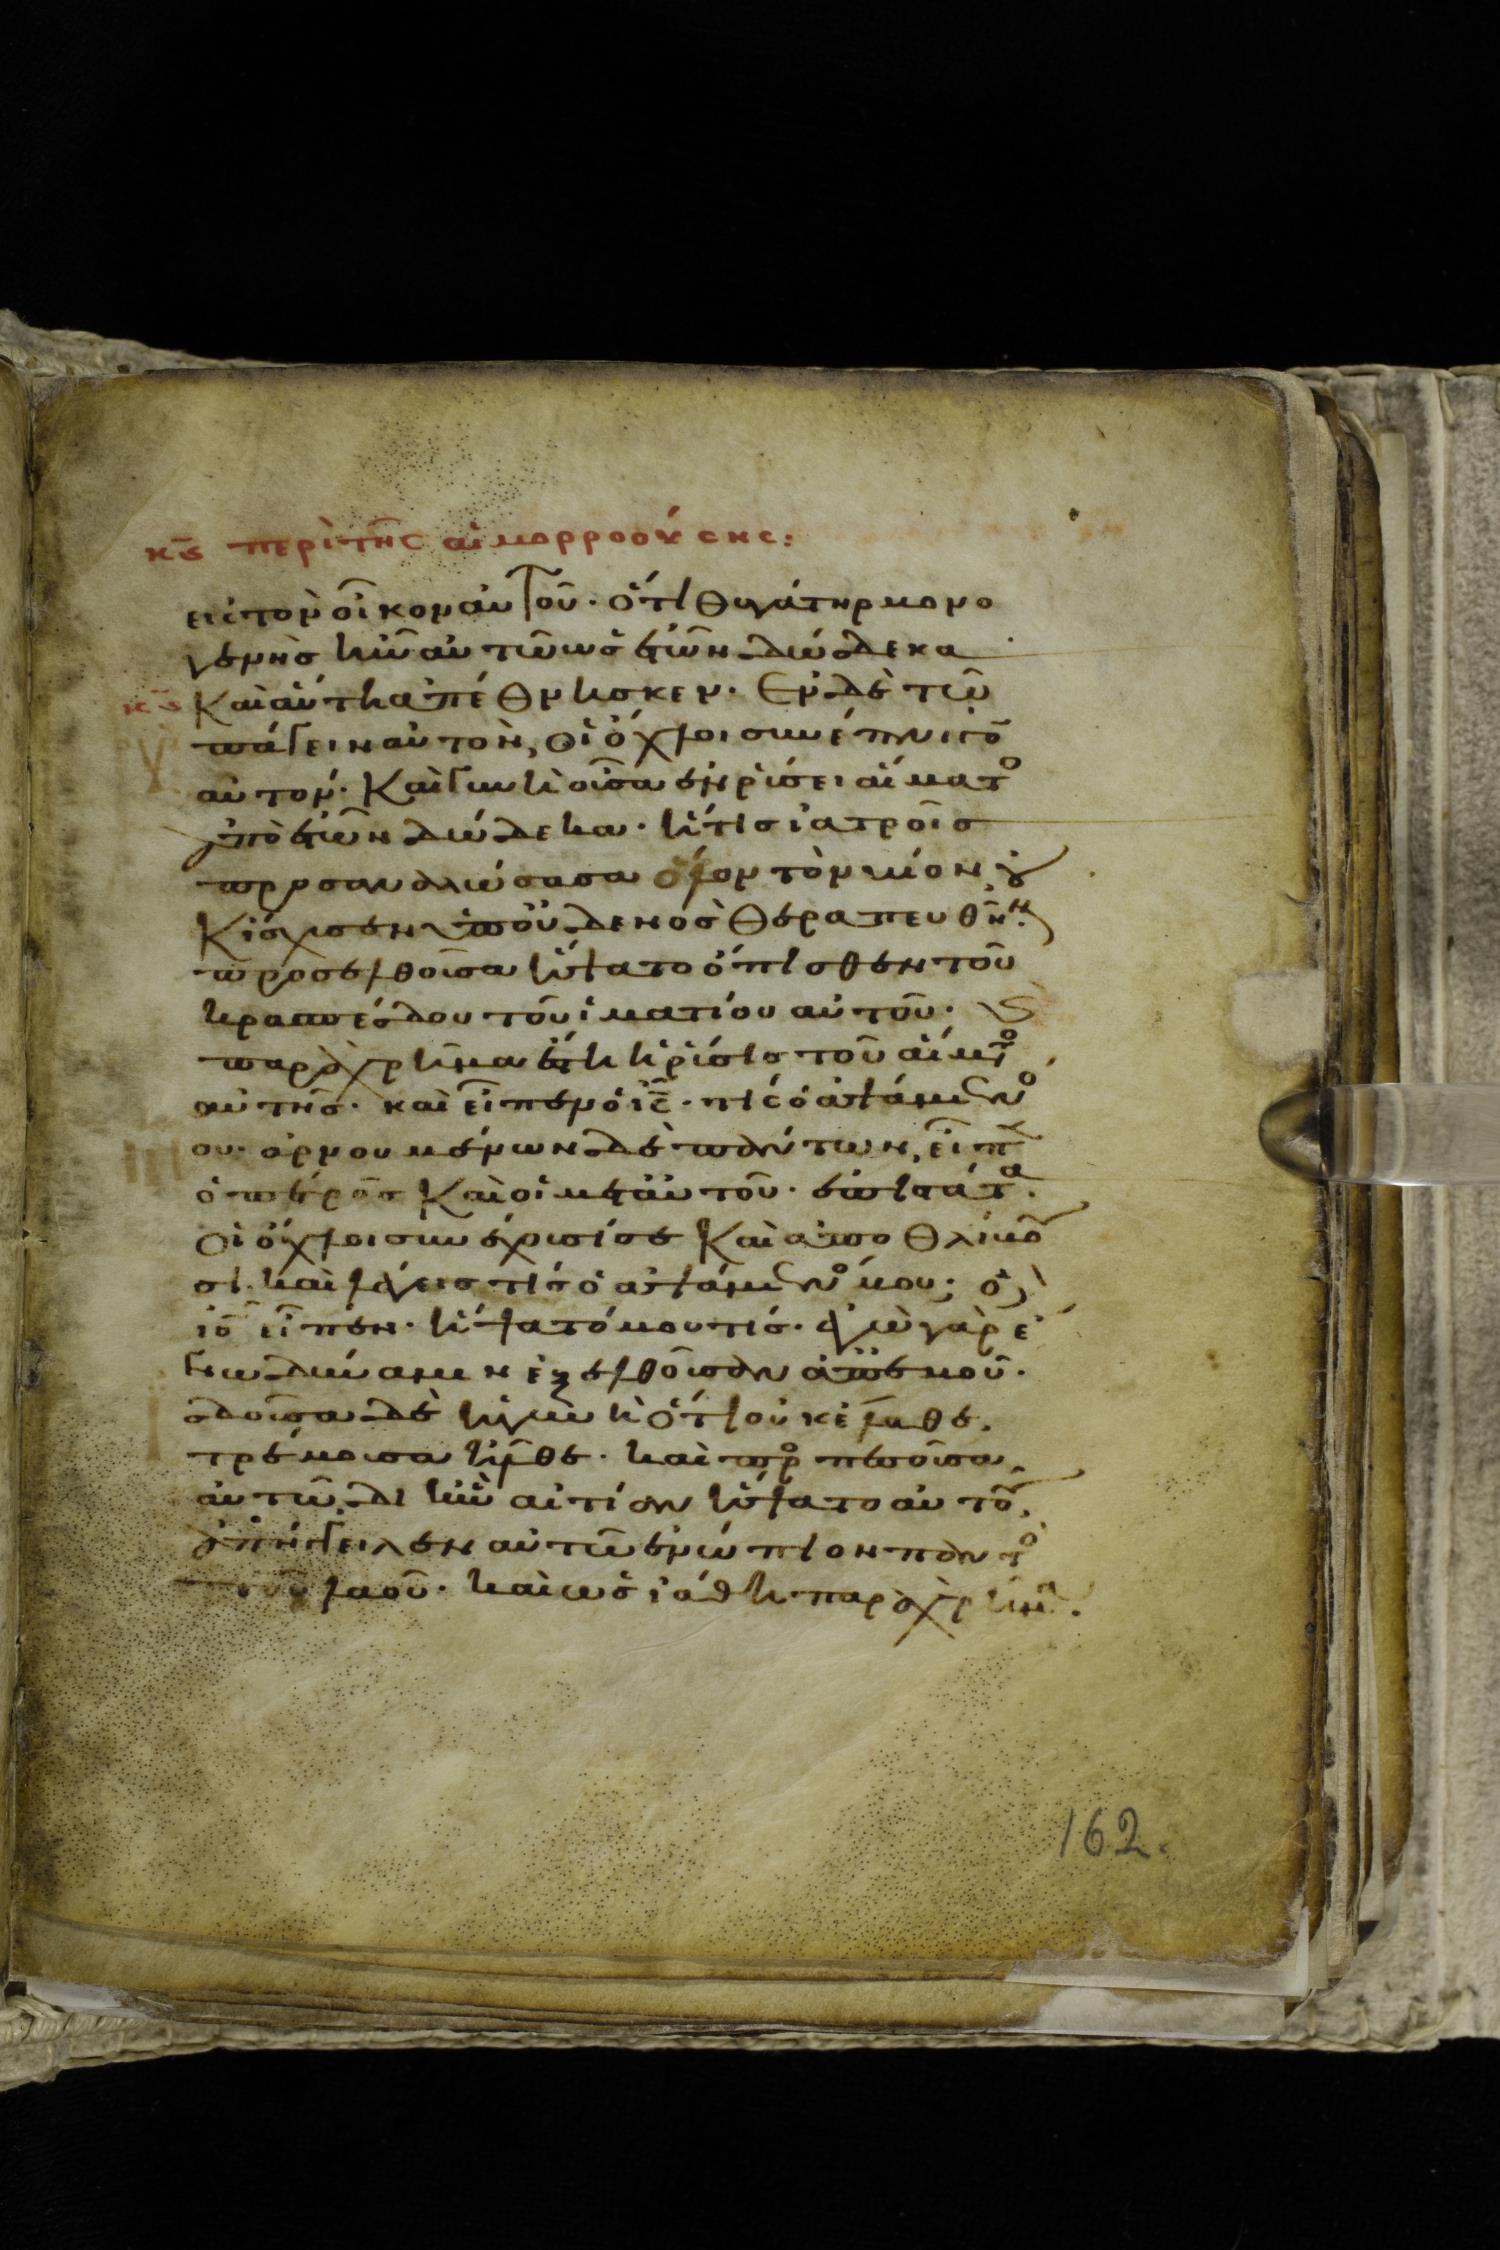 κς περὶ τῆς αἱμορροούσης:
εἰς τὸν οἶκον αὐτοῦ· ὅτι θυγάτηρ μονο
γενὴς ἦν αὐτῶ ὡς ἐτῶν δώδεκα
κς καὶ αὕτη ἀπέθνησκεν. Ἐν δὲ τῶ
ὑπάγειν αὐτὸν, οἱ ὄχλοι συνέπνιγο
αὐτόν· Καὶ γυνὴ οὖσα ἐν ῥύσει αἵματο
ἀπὸ ἐτῶν δώδεκα· ἥτις ἰατροῖς
προσαναλώσασα ὅλον τὸν βίον ου
κ ἴσχυσεν ὑπ' οὐδενὸς θεραπευθῆναι
προσελθοῦσα ἥψατο ὄπισθεν τοῦ
κρασπέδου τοῦ ἱματίου αὐτοῦ· κ
παραχρῆμα ἔστη ἡ ῥύσις τοῦ αἵματο
αὐτῆς· καὶ εἶπεν ὁ ις· τίς ὁ ἁψάμενο
ου· ἀρνουμένων δὲ πάντων, εἶπ
ὁ πέτρος Καὶ οἱ μετ' αὐτοῦ· ἐπιστάτα.
Οἱ ὄχλοι συνέχουσί σε Καὶ ἀποθλίβου
σι. καὶ λέγεις τίς ὁ ἁψάμενό μου; ὁ δ
ις εἶπεν· ἥψατό μου τίς· ἐγὼ γὰρ ἔ
γνων δύναμιν ἐξελθοῦσαν ἀπ' ἐμοῦ·
ἰδοῦσα δὲ ἡ γυνὴ ὅτι οὐκ ἔλαθε,
τρέμουσα ἦλθε· καὶ προσπεσοῦσα
αὐτῶ, δι' ἣν αἰτίαν ἥψατο αὐτοῦ,
ἀπήγγειλεν αὐτῶ ἐνώπιον παντὸ
τοῦ λαοῦ· καὶ ὡς ἰάθη παραχρῆμα.
162.